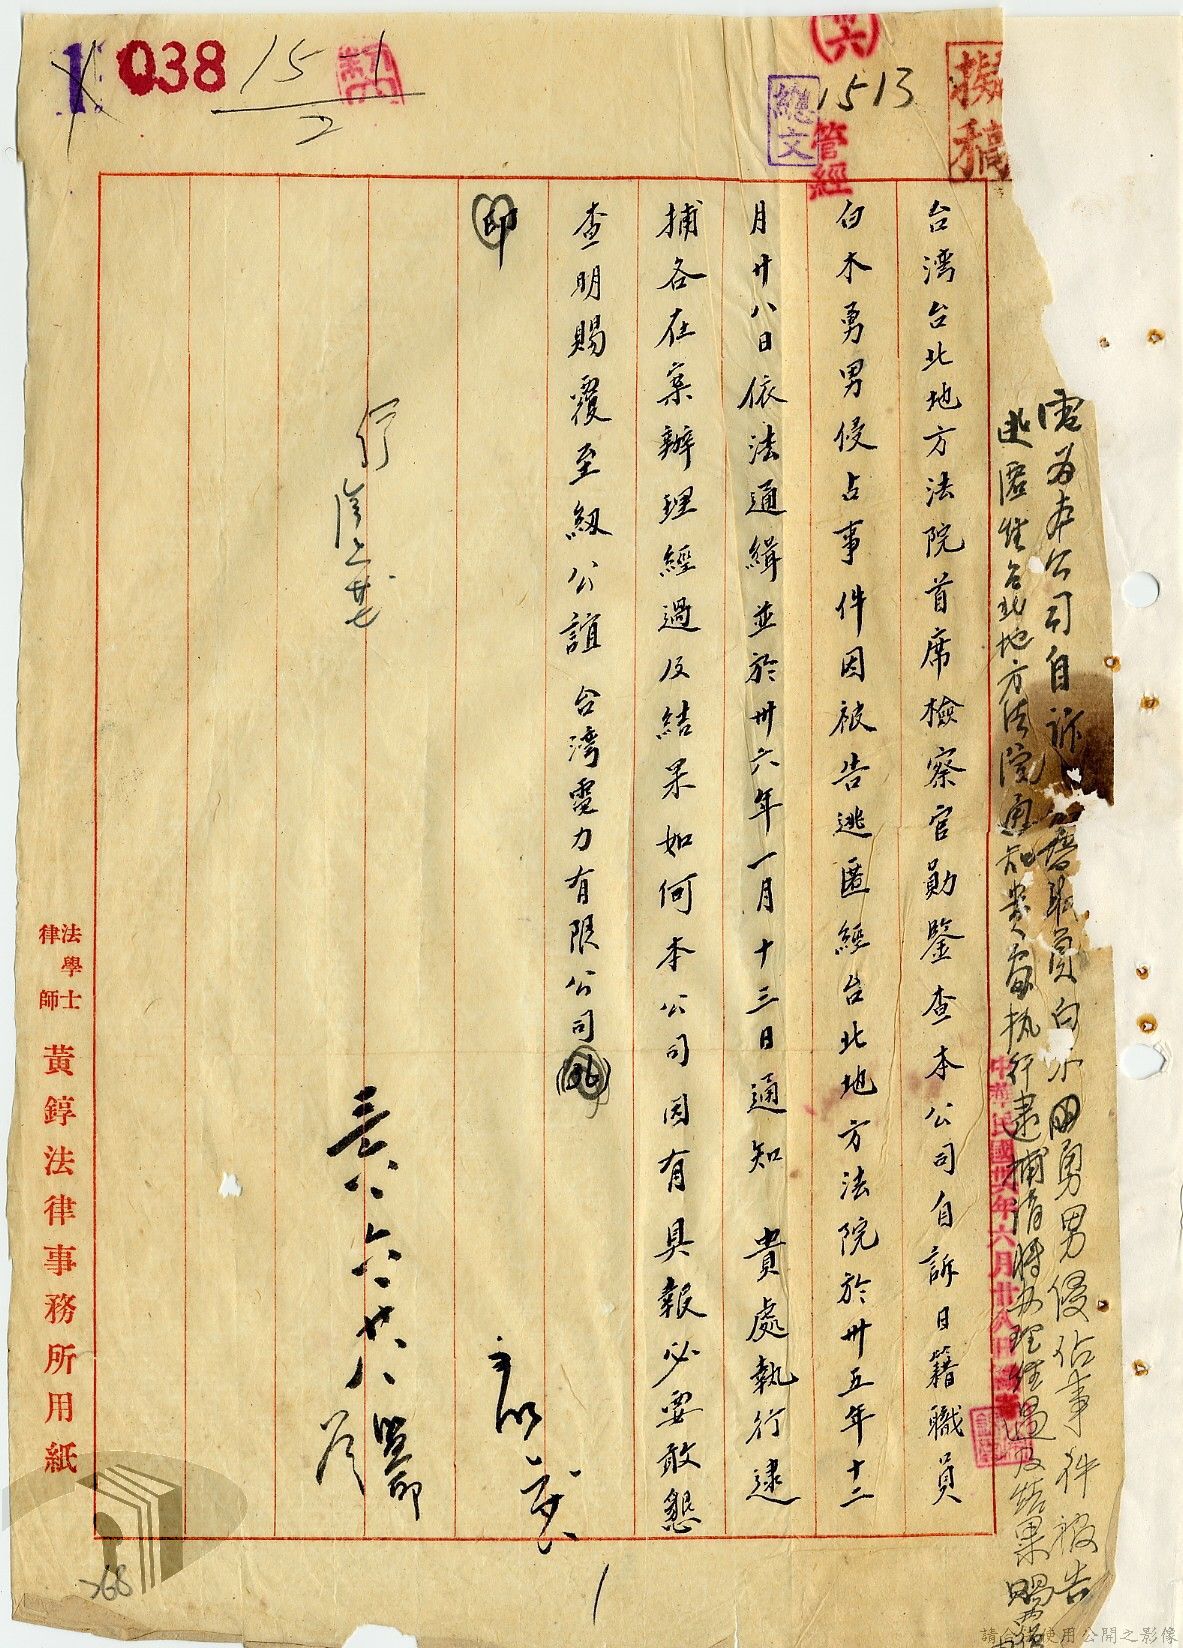 1 038 15-1
2
1513
總文
管經
擬稿
電為本公司自訴
職員白木勇男侵佔事件被告
逃匿經台北地方法院通知貴處執行逮捕請將办理經過及結果賜覆
台湾台北地方法院首席檢察官勛鑒查本公司自訴日籍職員
白木勇男侵占事件因被告逃匿經台北地方法院於卅五年十二
月廿八日依法通緝並於卅六年一月十三日通知 貴處執行逮
捕各在案辦理經過及結果如何本公司因有具報必要敢懇
查明賜覆至紉公誼 台湾電力有限公司
印
中華民國卅六年六月廿八日
法學士
律師
黃錞法律事務所用紙
268
1
請合理使用公開之影像